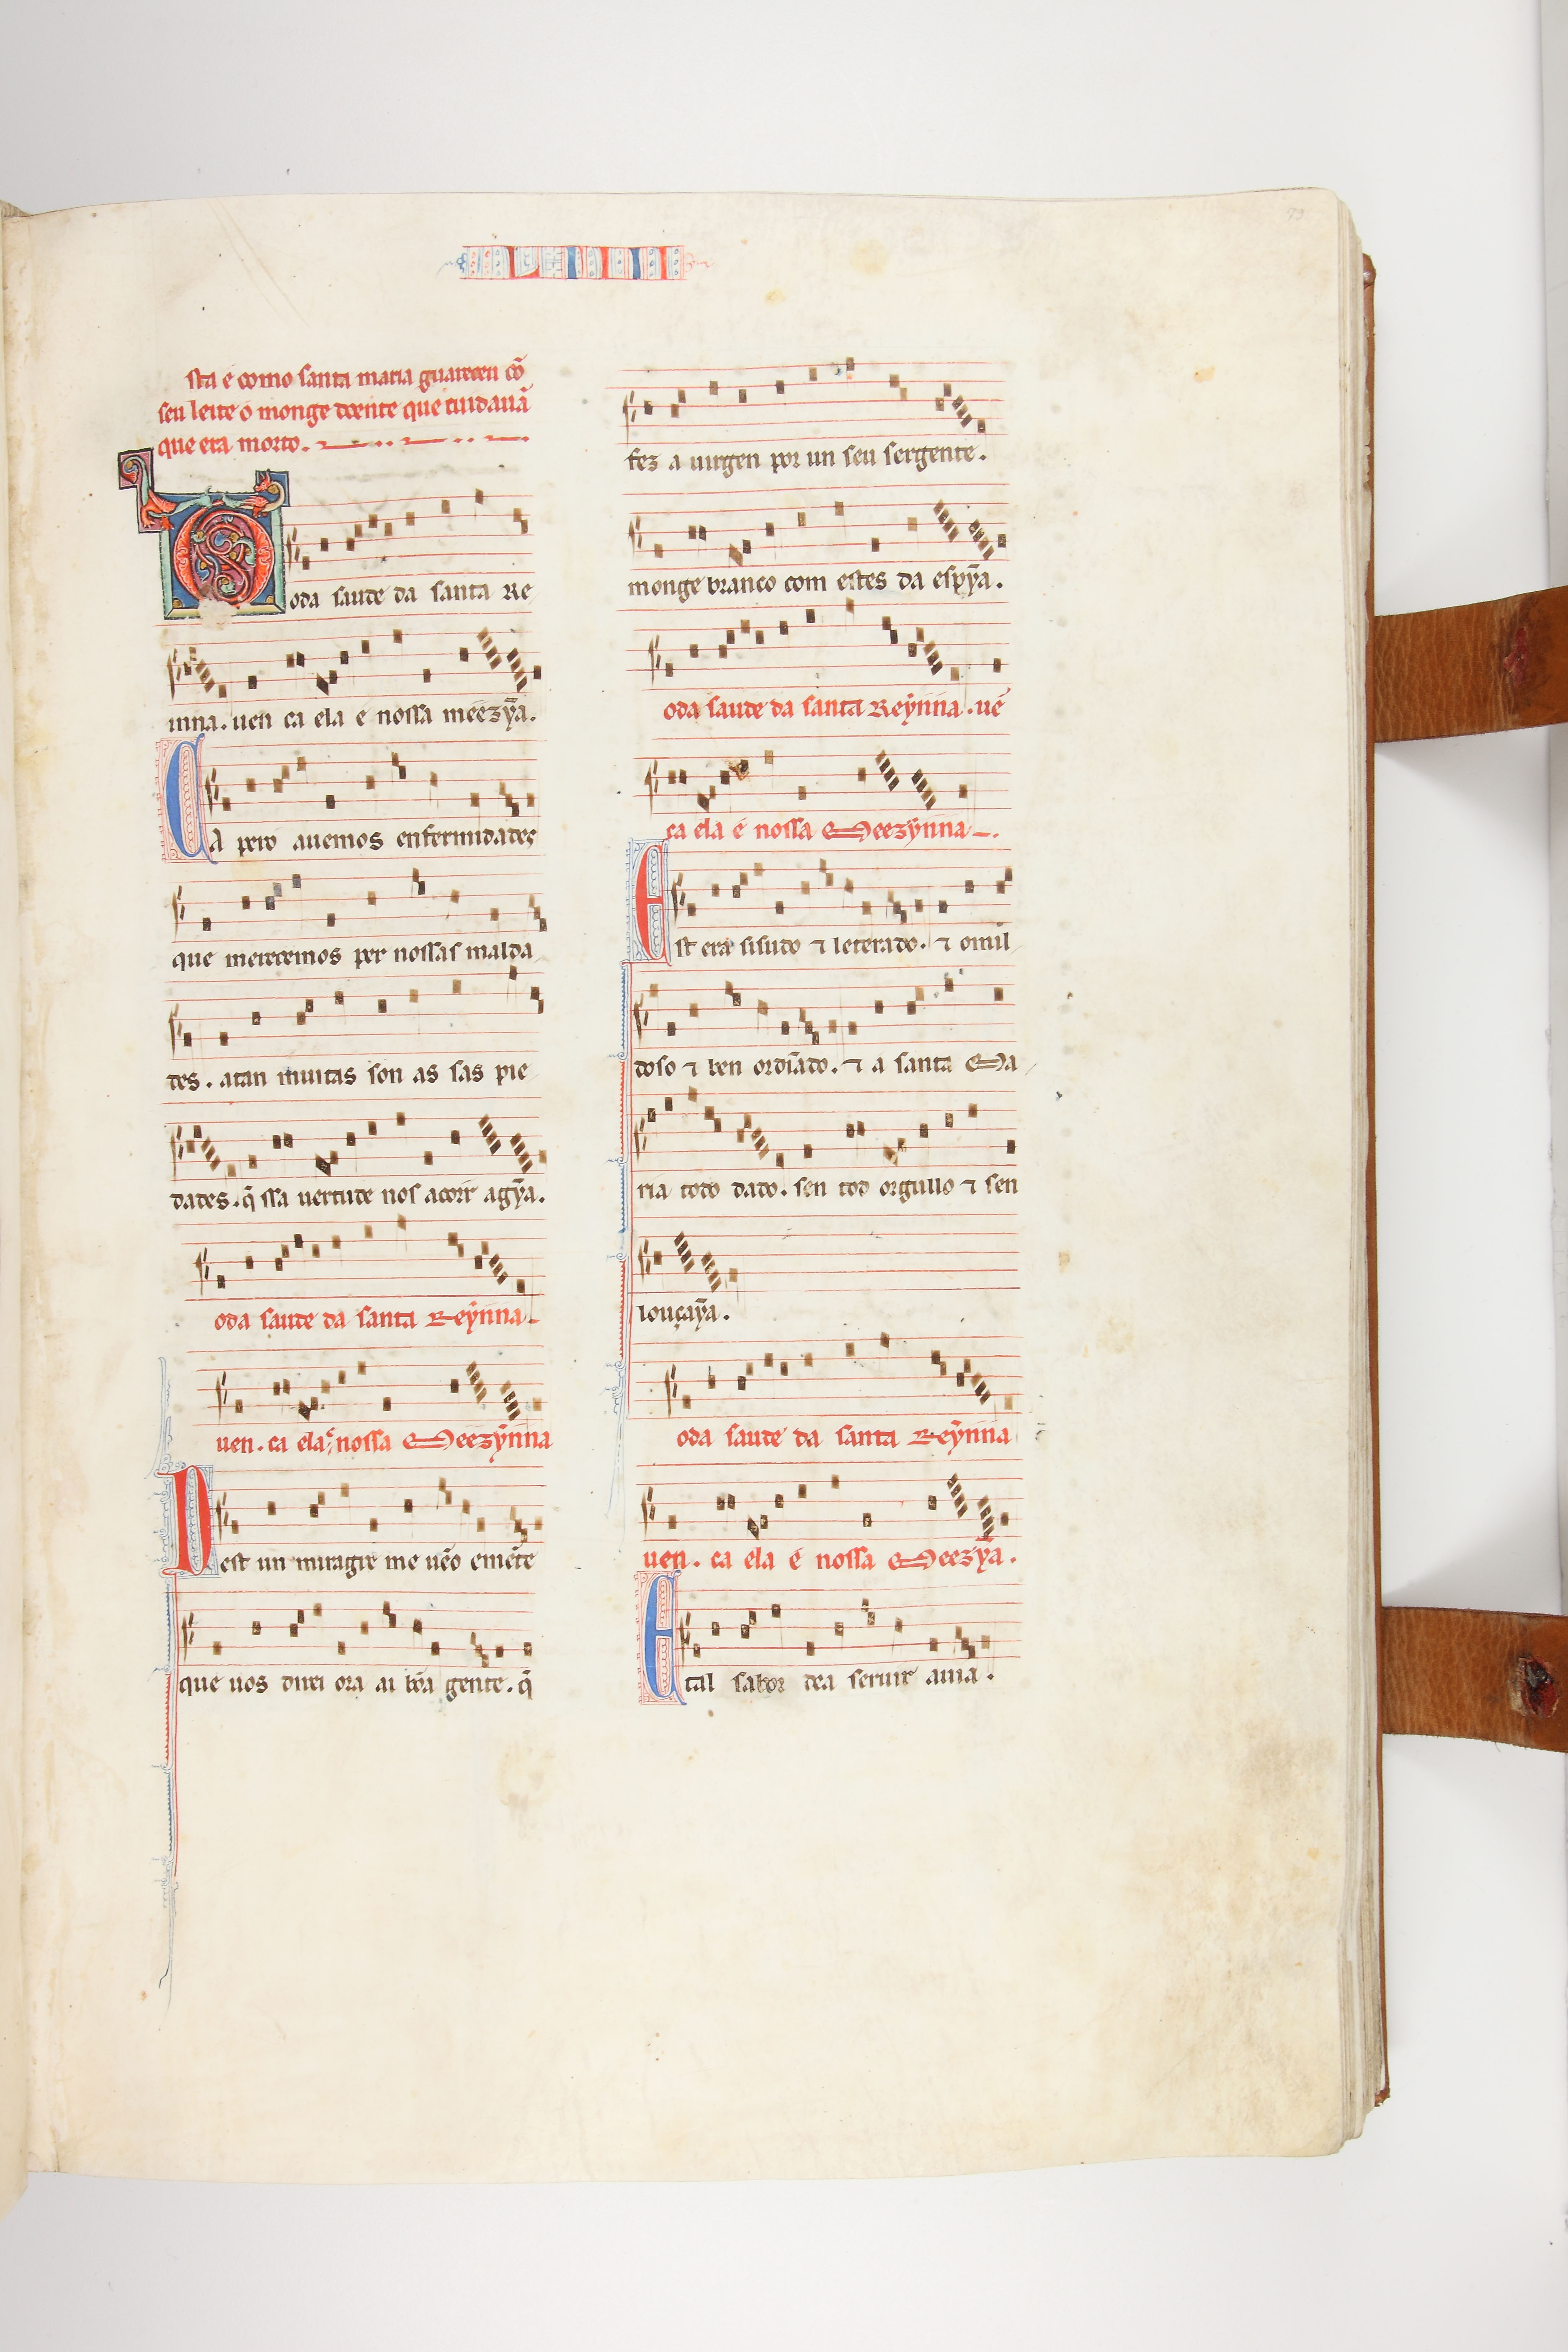 LIIII
sta é como santa maria guareceu cõ
seu leite o monge doente que cuidauã
que era morto.
Toda saude da santa Re
inna. uen ca ela e nossa meezỹa.
Ca pero auemos enfermidades
que merecemos per nossas malda
des. atan muitas son as sas pie
dades. q̃ ssa uertude nos acorr agỹa.
oda saude da santa Reỹnna
uen. ca ela é nossa Meezỹnna
Dest un miragre me uẽo emẽte
que uos direi ora ai bõa gente. q̃
fez a uirgen por un seu sergente.
monge branco com estes da espỹa.
oda saude da santa Reỹnna. ué
ca ela é nossa Meezỹnna
Est era sisudo ⁊ leterado. ⁊ omil
doso ⁊ ben ordĩado. ⁊ a santa Ma
ria todo dado. sen tod orgullo ⁊ sen
louçaỹa.
oda saude da santa Reỹnna
uen. ca ela é nossa Meezỹa.
E tal sabor dea seruir auia.